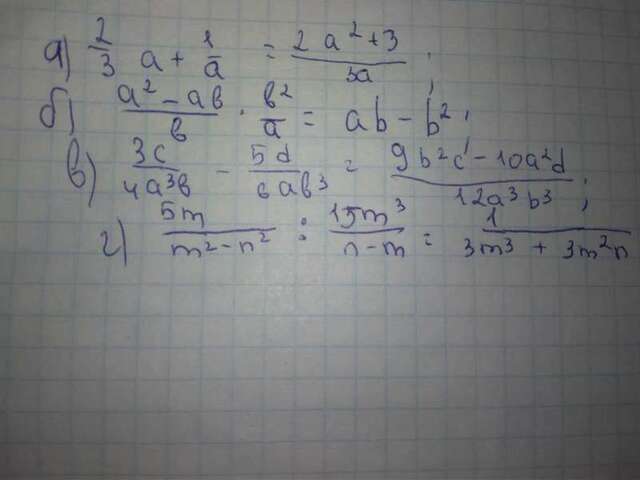 а) 2/3 a + 1/a = (2a² + 3)/3a ;
б) (a² - ab)/b · b²/a = ab - b² ;
в) 3c/4a³b - 5d/6ab³ = (9b²c - 10a²d)/12a³b³ ;
г) 5m/(m² - n²) : 15m³/(n - m) = 1/(3m³ + 3m²n)